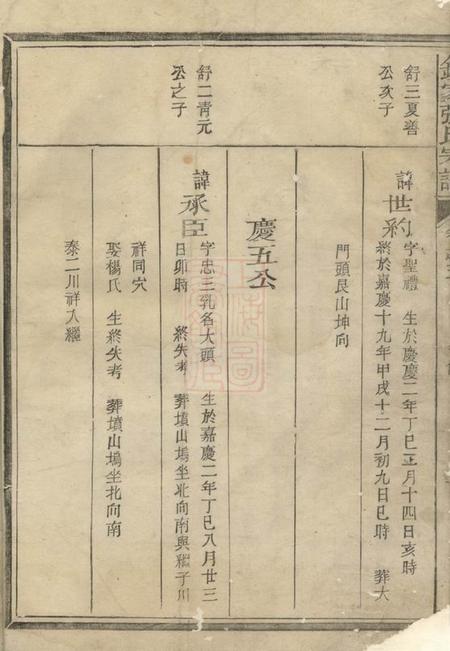 張氏宗譜
舒三夏善
公亥子
諱世約
字聖禮 生於慶慶二年丁巳正月十四日亥時
終於嘉慶十九年甲戌十二月初九日巳時 葬大
門頭艮山坤向
慶五公
舒二青元
公之子
諱承臣
字忠主乳名大頭 生於嘉慶二年丁巳八月廿三
日卯時 終失考 葬墳山塢坐北向南與繼子川
祥同穴
娶楊氏 生終失考 葬墳山塢坐北向南
泰二川祥入繼